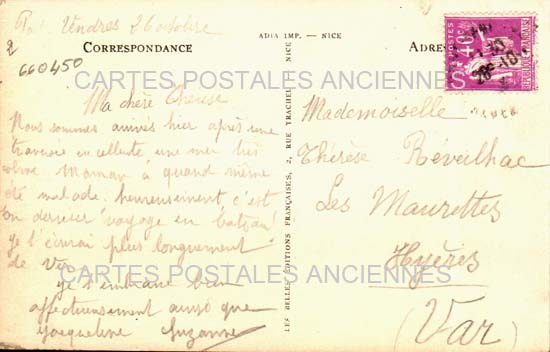 Vendres 26 octobre
2
660450
ADIA IMP. — NICE
CORRESPONDANCE
ADRES
POSTES
40c
REPUBLIQUE FRANÇAISE
28-10
CARTES POSTALES ANCIENNES
Ma chère Thérèse
Nous sommes arrivés hier après une
traversée excellente une mer très
calme. Maman a quand même
été malade. heureusement c'est
son dernier voyage en bateau!
Je t'écrirai plus longuement
de
je t'embrasse bien
affectueusement ainsi que
Jacqueline Suzanne
LES BELLES ÉDITIONS FRANÇAISES, 2, RUE TRACHEL, NICE
Mademoiselle
Thérèse Réveilhac
Les Maurettes
Hyères
(Var)
CARTES POSTALES ANCIENNES